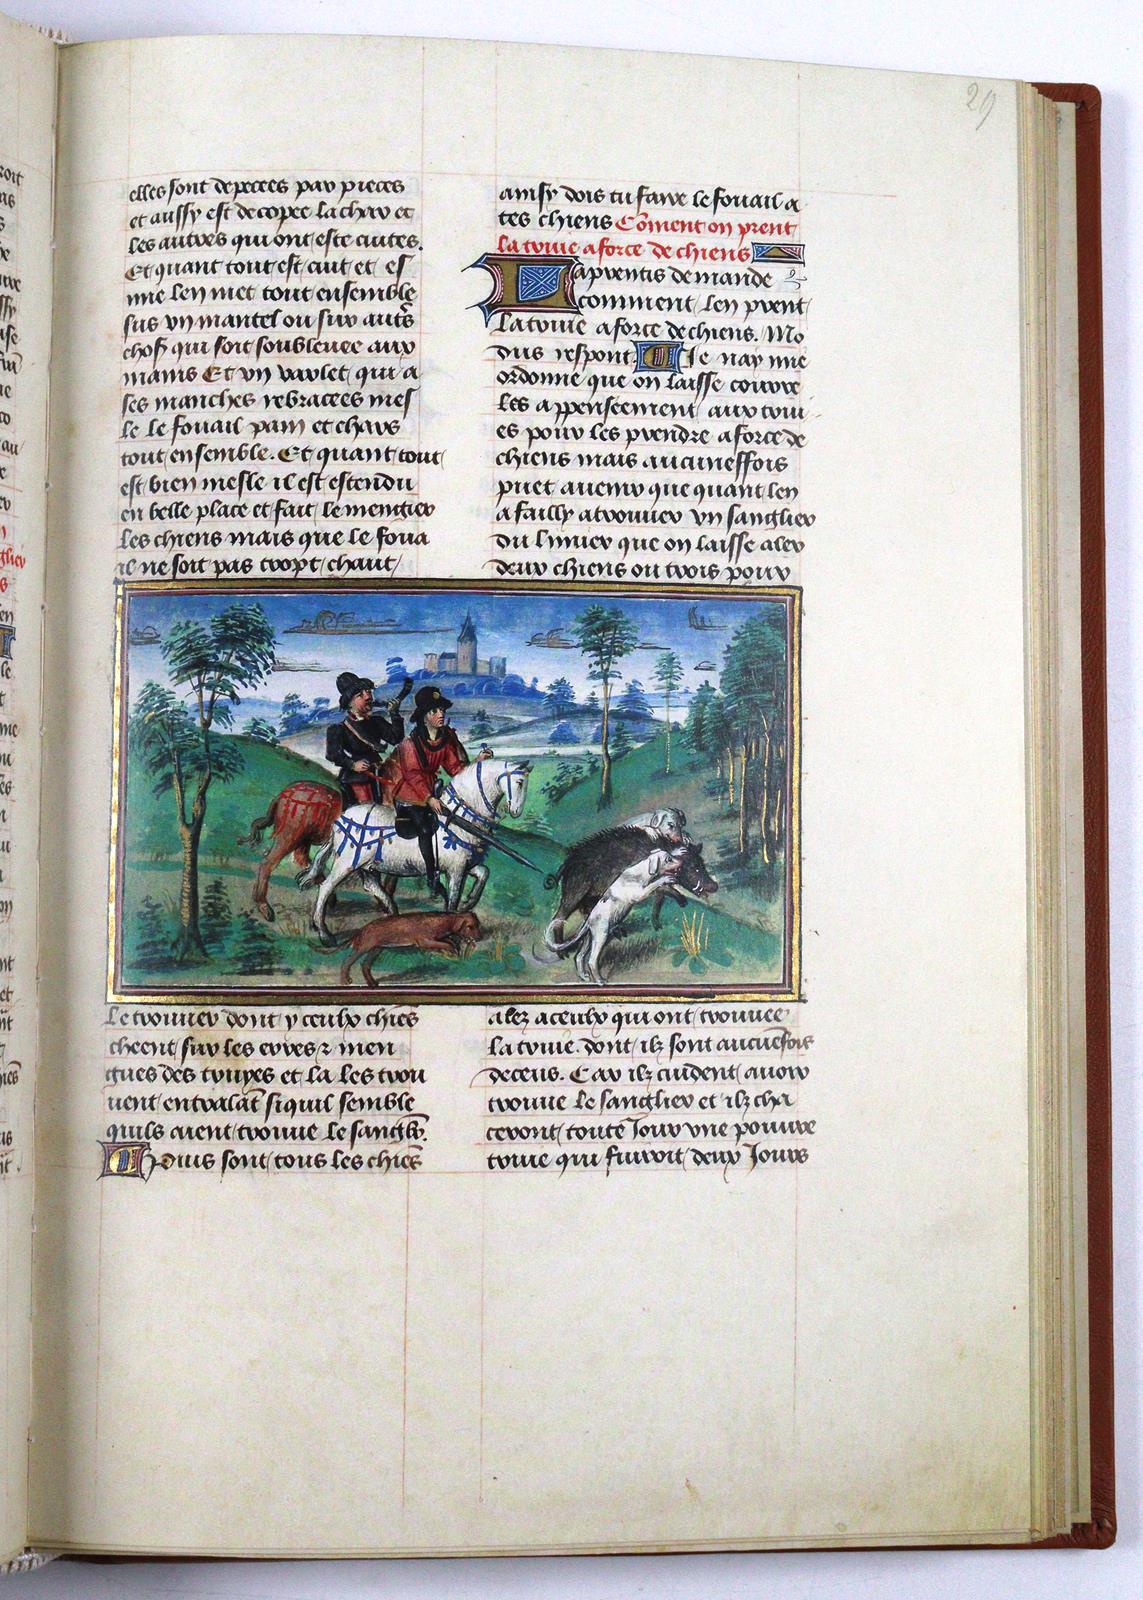 29
elles sont depecees par pieces
et aussy est decopee la char et
les autres qui ont este cuites.
Et quant tout est cuit et es
mie len met tout ensemble
sus vn mantel ou sur aut͛s
chos̉ qui soit soubleuee aux
mains Et vn varlet qui a
ses manches rebracees mes
le le fouail pain et chars
tout ensemble. Et quant tout
est bien mesle il est estendu
en belle place et fait le mengier
les chiens mais que le foua
il ne soit pas tropt chault
ainsy dois tu faire le fouail a
tes chiens Cõment on prent
la truie a force de chiens
Lapprentis demande
comment len prent
la truie a force de chiens. Mo
dus respont. Je nay mie
ordonne que on laisse courre
les appenseement aux trui
es pour les prendre a force de
chiens mais aucuneffois
puet auenir que quant len
a failly a trouuer vn sanglier
du limier que on laisse aler
deux chiens ou trois pour
le trouuer dont y ceulx chiẽs
cheent sur les erres ⁊ men
gues des truyes et la les trou
uent entralãt si quil semble
quils aient trouue le sangl̃r.
Puis sont tous les chiẽs
alez a ceulx qui ont trouuee
la truie. dont ilz sont aucuẽfois
deceus. Car ilz cuident auoir
trouue le sanglier et ilz cha
ceront toute Jour vne pouure
truie qui fuiroit deux Jours